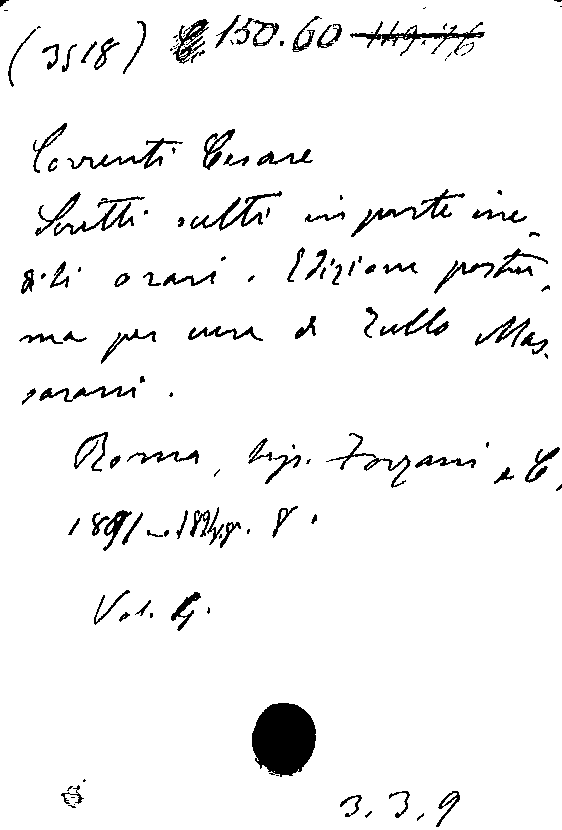 (3518) 150.60 119.76
Correnti Cesare
Scritti scelti in parte ine-
diti o rari. Edizione postu-
ma per cura di Tullo Mas-
sarani.
Roma, tip. Forzani e C.
1891-1894. 8°.
Vol. 4.
3.3.9